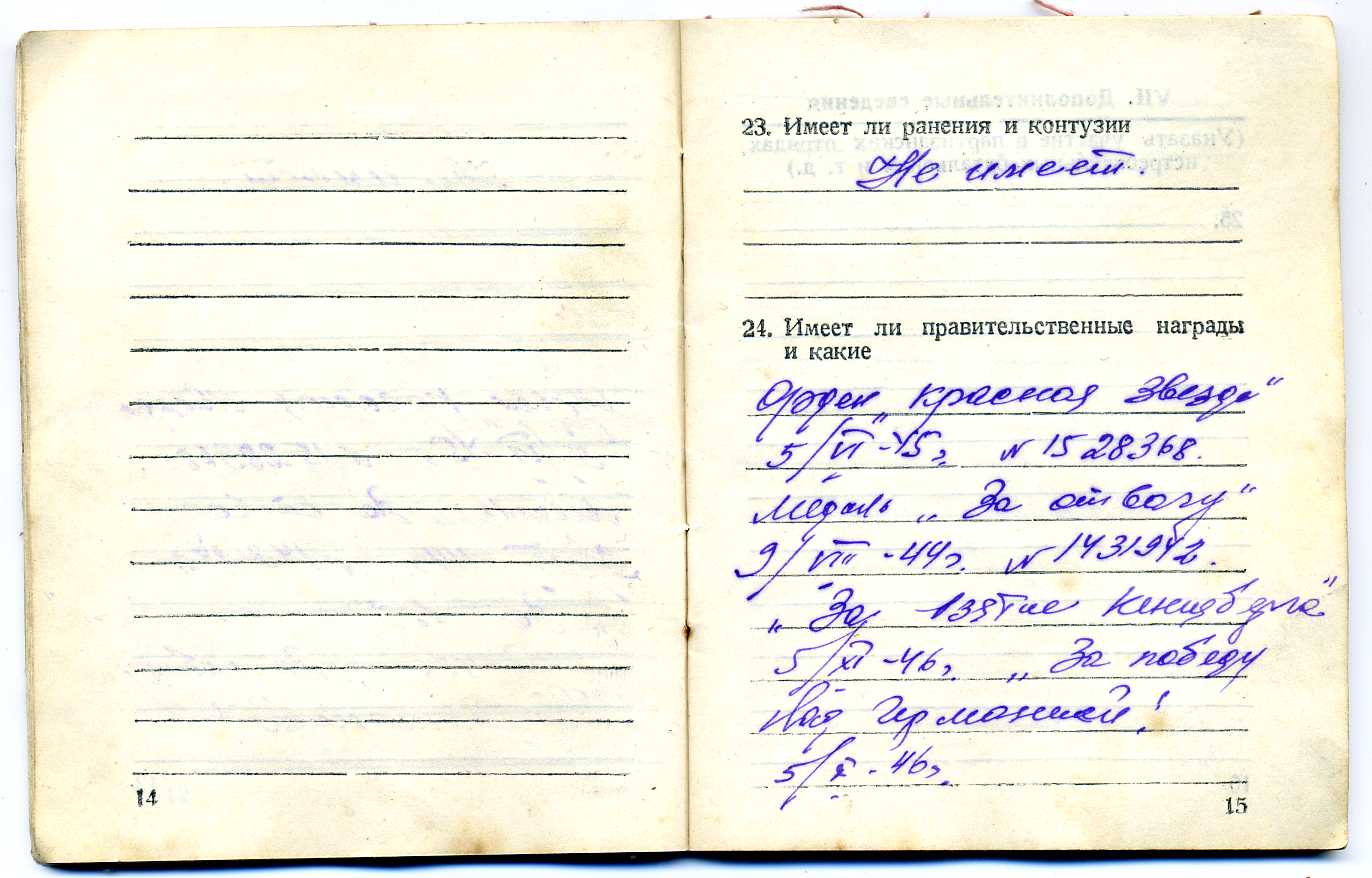 14
23. Имеет ли ранения и контузии
Не имеет.
24. Имеет ли правительственные награды
и какие
Орден „Красная Звезда"
5/VI-45г. № 1528368.
Медаль „За отвагу"
9/VIII-44г. № 1431942.
„За взятие Кенигсберга"
5/XI-46г. „За победу
над Германией!
5/X-46г.
15